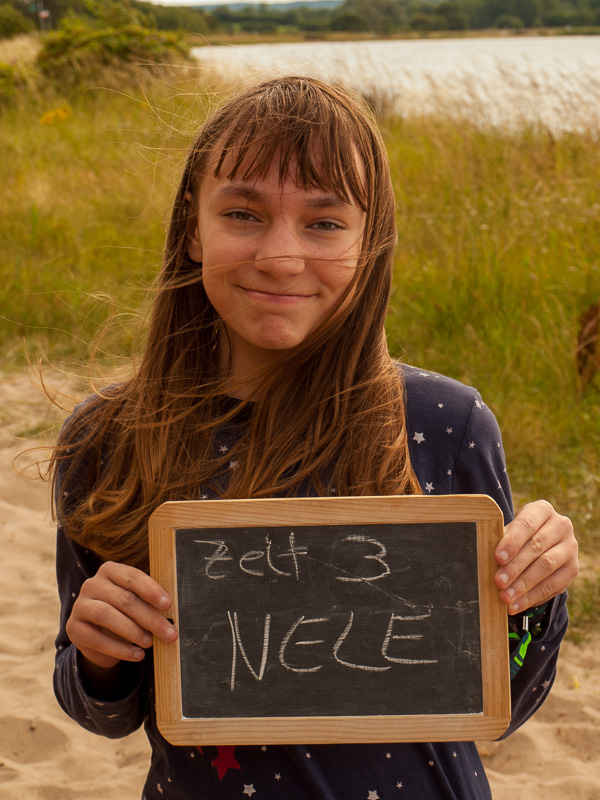 Zelt 3
NELE